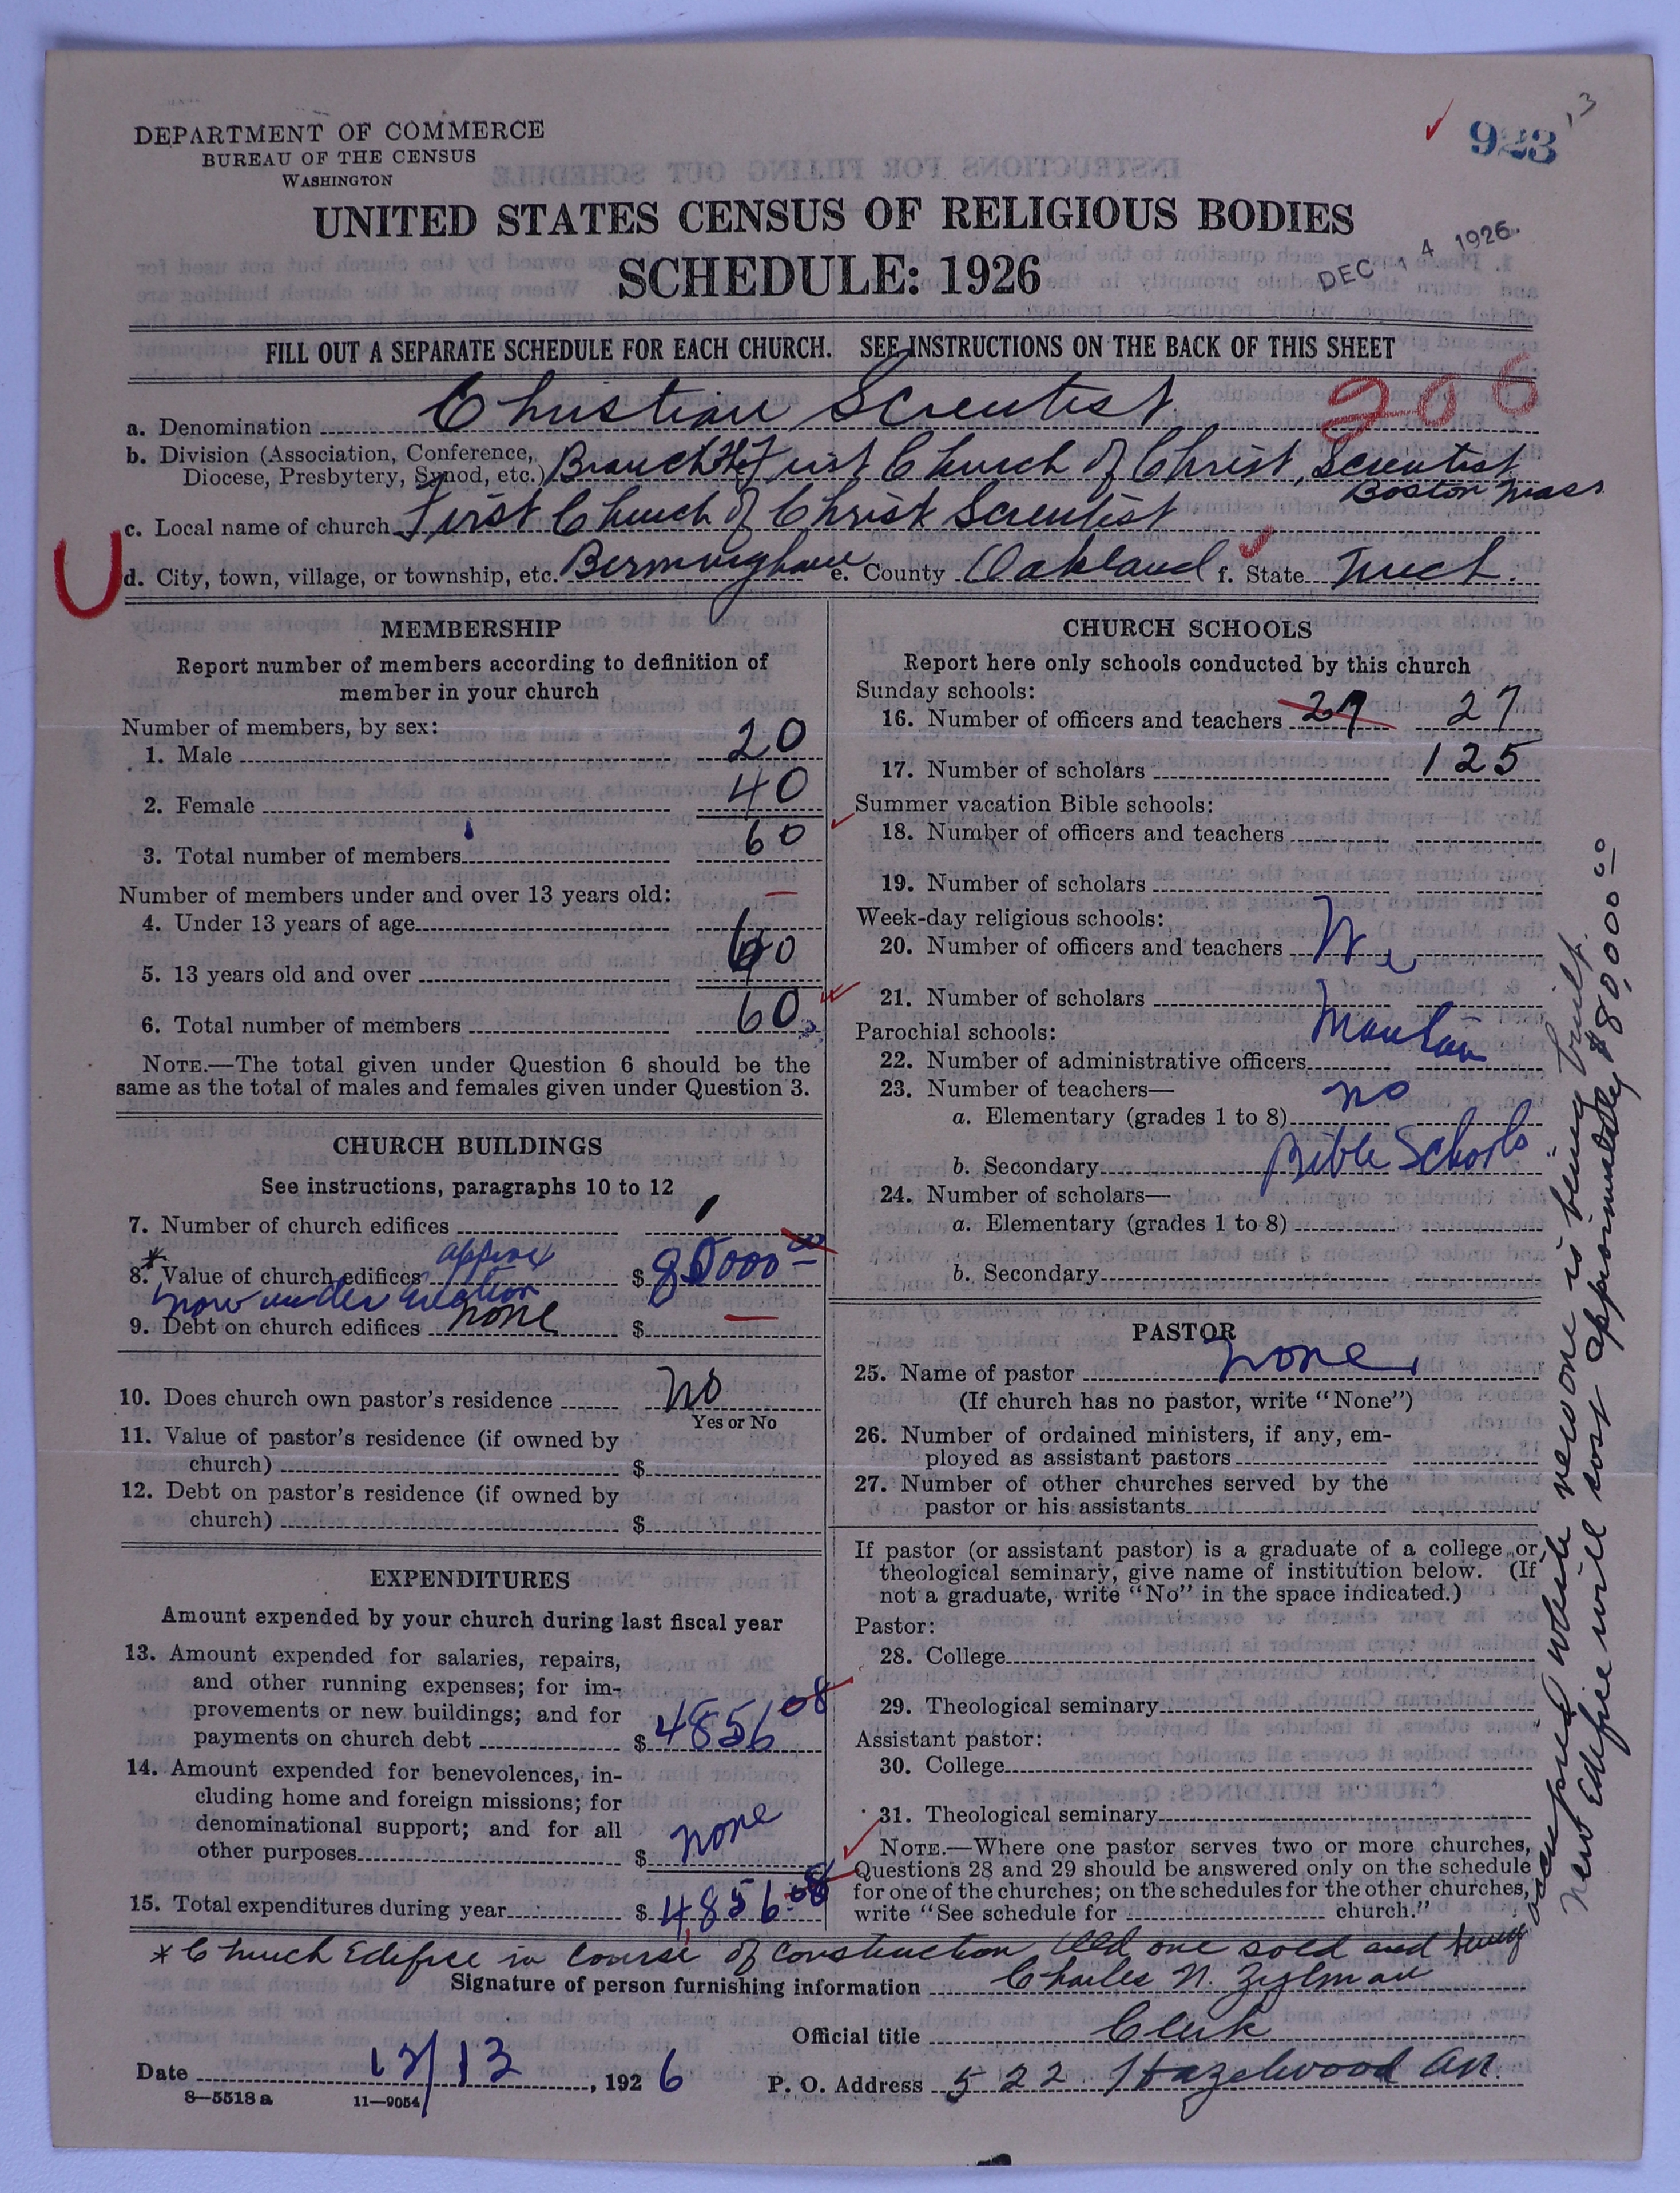 DEPARTMENT OF COMMERCE
BUREAU OF THE CENSUS
WASHINGTON
923
13
UNITED STATES CENSUS OF RELIGIOUS BODIES
SCHEDULE: 1926
DEC 14 1926
FILL OUT A SEPARATE SCHEDULE FOR EACH CHURCH. SEE INSTRUCTIONS ON THE BACK OF THIS SHEET
206
a. Denomination Christian Scientist
b. Division (Association, Conference, Diocese, Presbytery, Synod, etc.) Branch The First Church of Christ, Scientist
Boston Mass
c. Local name of church First Church of Christ Scientist
U
d. City, town, village, or township, etc. Birmingham e. County Oakland f. State Mich.
MEMBERSHIP
Report number of members according to definition of
member in your church
Number of members, by sex:
1. Male 20
2. Female 40
3. Total number of members 60
Number of members under and over 13 years old:
4. Under 13 years of age —
5. 13 years old and over 60
6. Total number of members 60
NOTE.—The total given under Question 6 should be the
same as the total of males and females given under Question 3.
CHURCH BUILDINGS
See instructions, paragraphs 10 to 12
7. Number of church edifices 1
8.* Value of church edifices approx $ 80000 00
now under erection
9. Debt on church edifices none $ —
10. Does church own pastor's residence No
Yes or No
11. Value of pastor's residence (if owned by
church) $
12. Debt on pastor's residence (if owned by
church) $
EXPENDITURES
Amount expended by your church during last fiscal year
13. Amount expended for salaries, repairs,
and other running expenses; for im-
provements or new buildings; and for
payments on church debt $ 4856 08
14. Amount expended for benevolences, in-
cluding home and foreign missions; for
denominational support; and for all
other purposes $ none
15. Total expenditures during year $ 4856.08
CHURCH SCHOOLS
Report here only schools conducted by this church
Sunday schools:
16. Number of officers and teachers 27 27
17. Number of scholars 125
Summer vacation Bible schools:
18. Number of officers and teachers
19. Number of scholars
Week-day religious schools:
20. Number of officers and teachers We
21. Number of scholars
Parochial schools: Maintain
22. Number of administrative officers
23. Number of teachers— no
a. Elementary (grades 1 to 8)
b. Secondary Bible Schools
24. Number of scholars—
a. Elementary (grades 1 to 8)
b. Secondary
PASTOR
25. Name of pastor none
(If church has no pastor, write "None")
26. Number of ordained ministers, if any, em-
ployed as assistant pastors
27. Number of other churches served by the
pastor or his assistants
If pastor (or assistant pastor) is a graduate of a college or
theological seminary, give name of institution below. (If
not a graduate, write "No" in the space indicated.)
Pastor:
28. College
29. Theological seminary
Assistant pastor:
30. College
31. Theological seminary
NOTE.—Where one pastor serves two or more churches,
Questions 28 and 29 should be answered only on the schedule
for one of the churches; on the schedules for the other churches,
write "See schedule for church."
* Church Edifice in course of construction Old one sold and being
occupied while new one is being built.
New Edifice will cost approximately $80,000 00
Signature of person furnishing information Charles N. Zylman
Official title Clerk
Date 12/13, 1926 P. O. Address 522 Hazelwood Av.
8—5518 a 11—9054